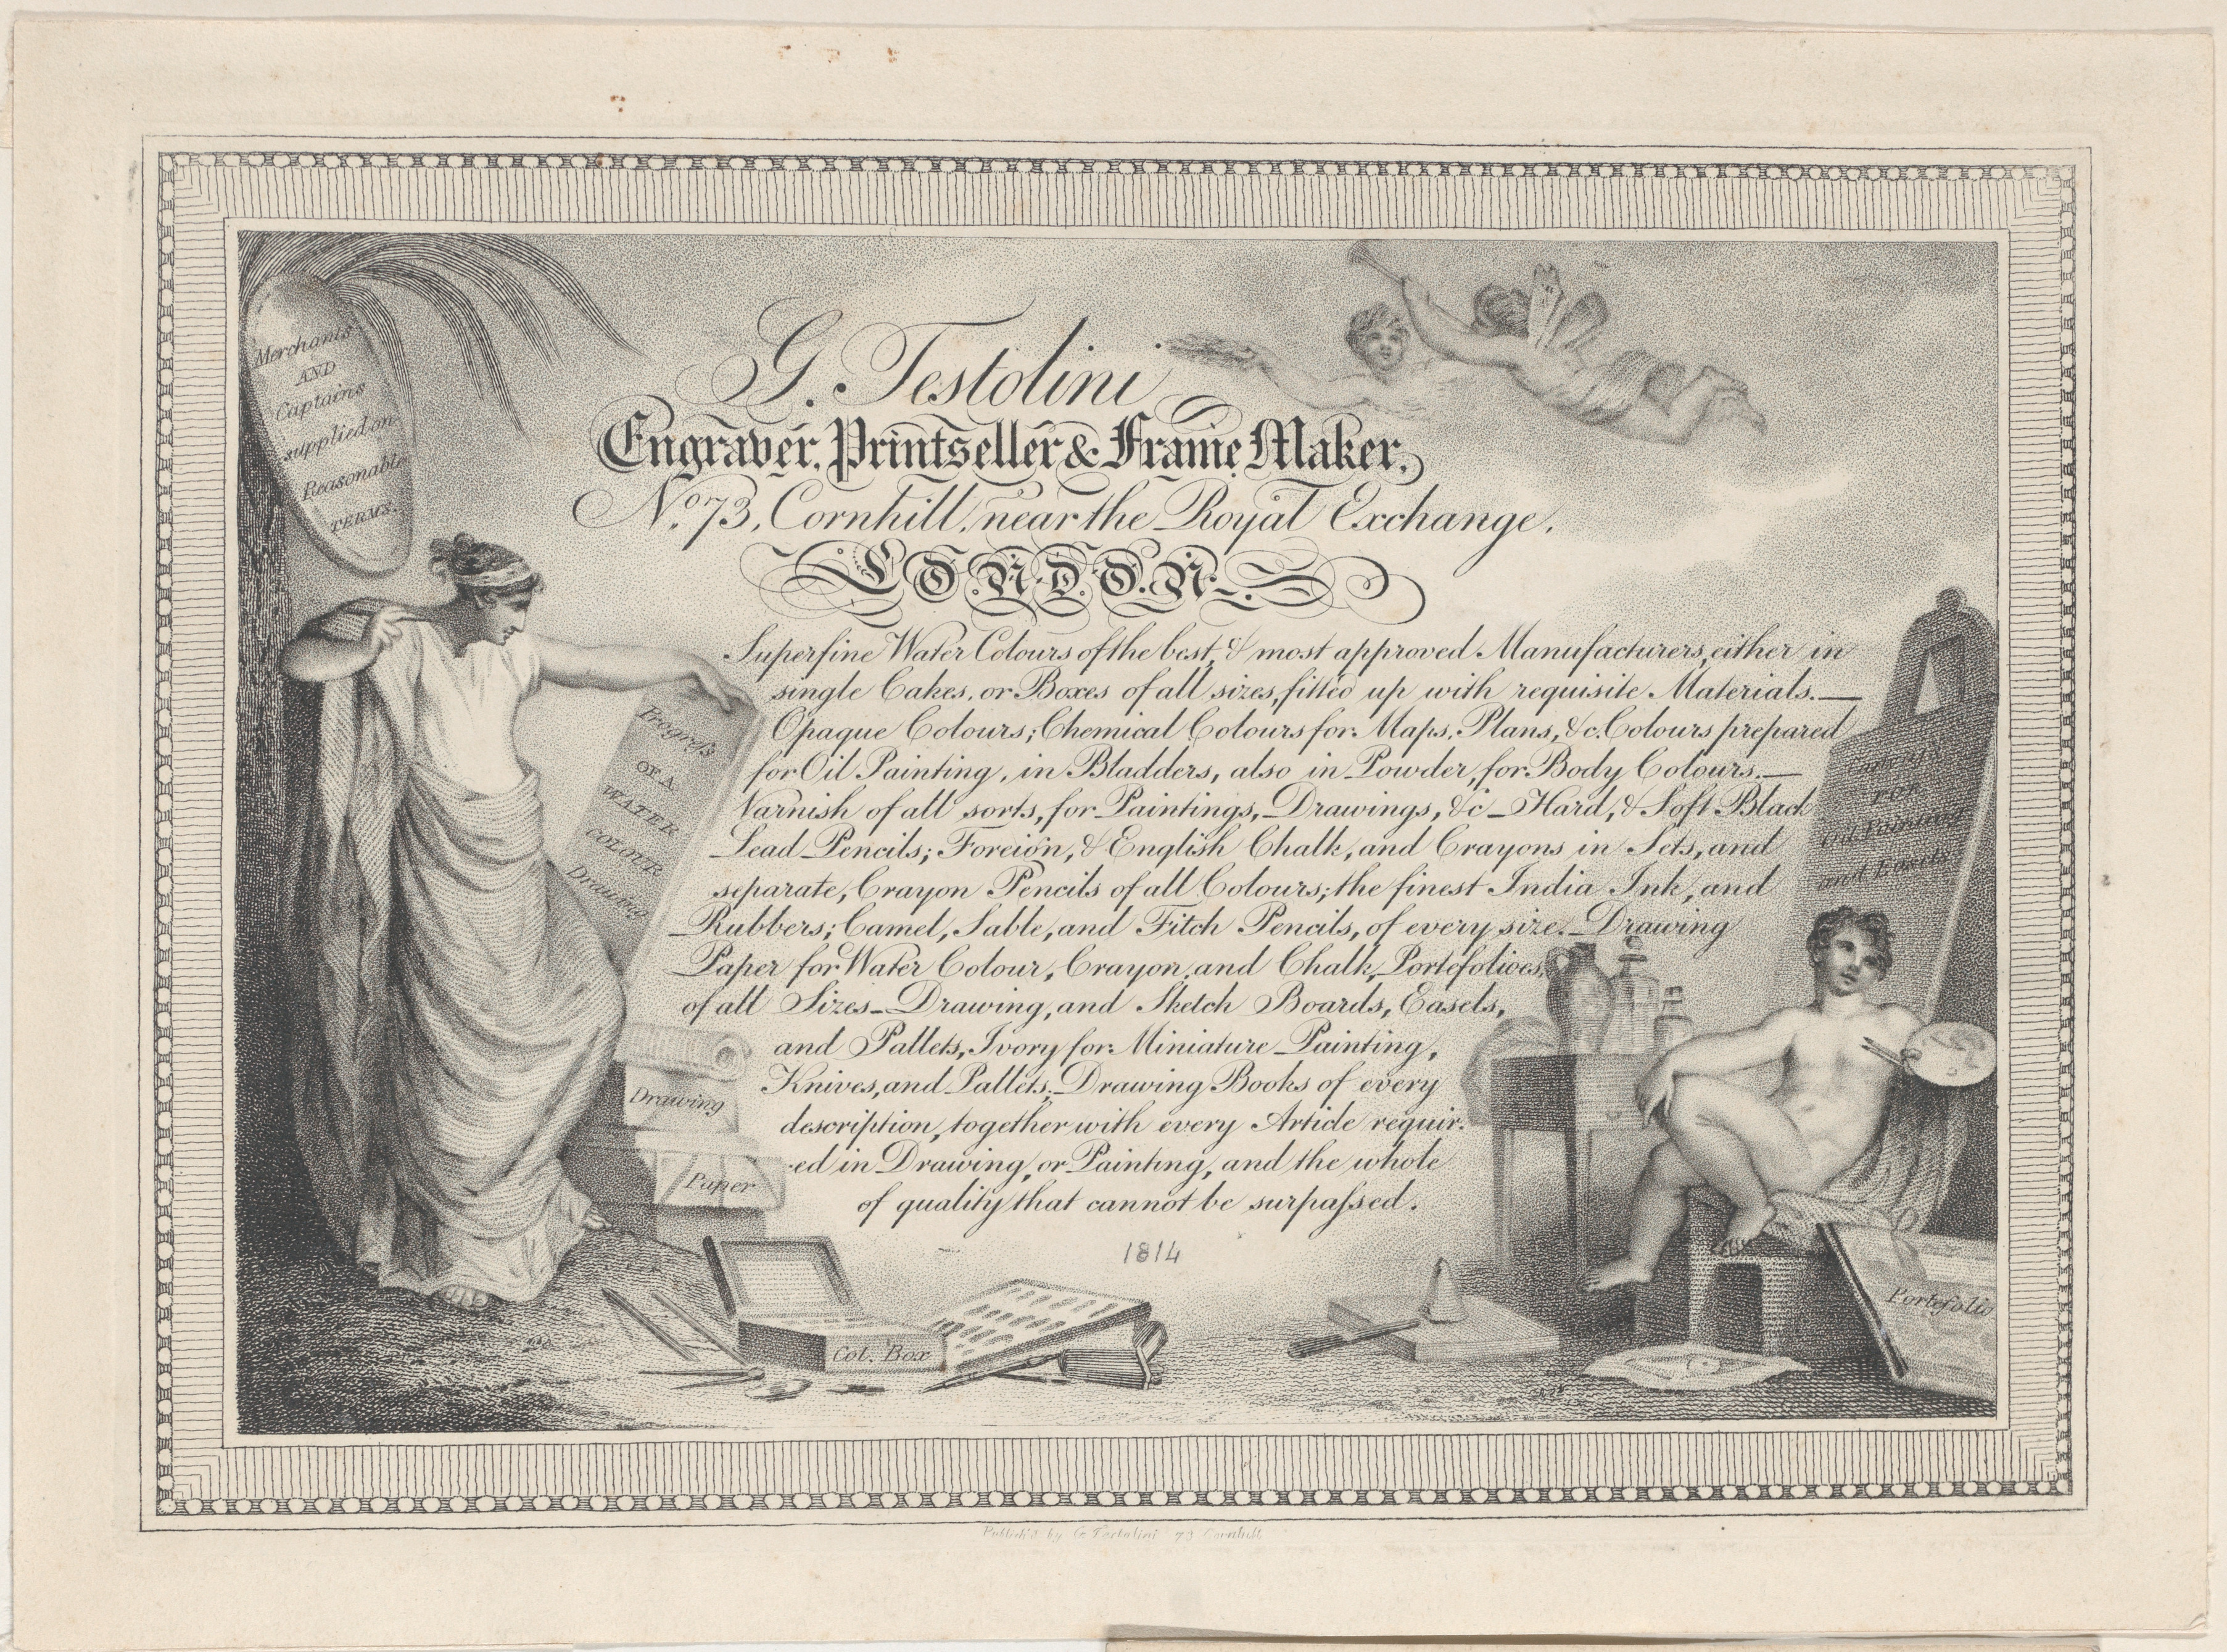 Merchants
AND
Captains
supplied on
Reasonable
TERMS.
G. Testolini
Engraver, Printseller & Frame Maker,
No. 73, Cornhill, near the Royal Exchange.
LONDON.
Superfine Water Colours of the best, & most approved Manufacturers, either in
single Cakes, or Boxes of all sizes, fitted up with requisite Materials.—
Opaque Colours; Chemical Colours for Maps, Plans, &c. Colours prepared
for Oil Painting, in Bladders, also in Powder, for Body Colours.—
Varnish of all sorts, for Paintings, Drawings, &c — Hard, & Soft Black
Lead Pencils; Foreign, & English Chalk, and Crayons in Sets, and
separate, Crayon Pencils of all Colours; the finest India Ink, and
Rubbers; Camel, Sable, and Fitch Pencils, of every size. Drawing
Paper for Water Colour, Crayon, and Chalk, Portefolioes,
of all Sizes — Drawing, and Sketch Boards, Easels,
and Pallets, Ivory for Miniature Painting,
Knives, and Pallets; Drawing Books of every
description, together with every Article requir-
-ed in Drawing, or Painting, and the whole
of quality that cannot be surpaſsed.
1814
Progreſs
OF A
WATER
COLOUR
Drawing
Drawing
Paper
Col. Box
FOR
Oil Painting
and Easels
Portefolio
Publish'd by G. Testolini 73 Cornhill